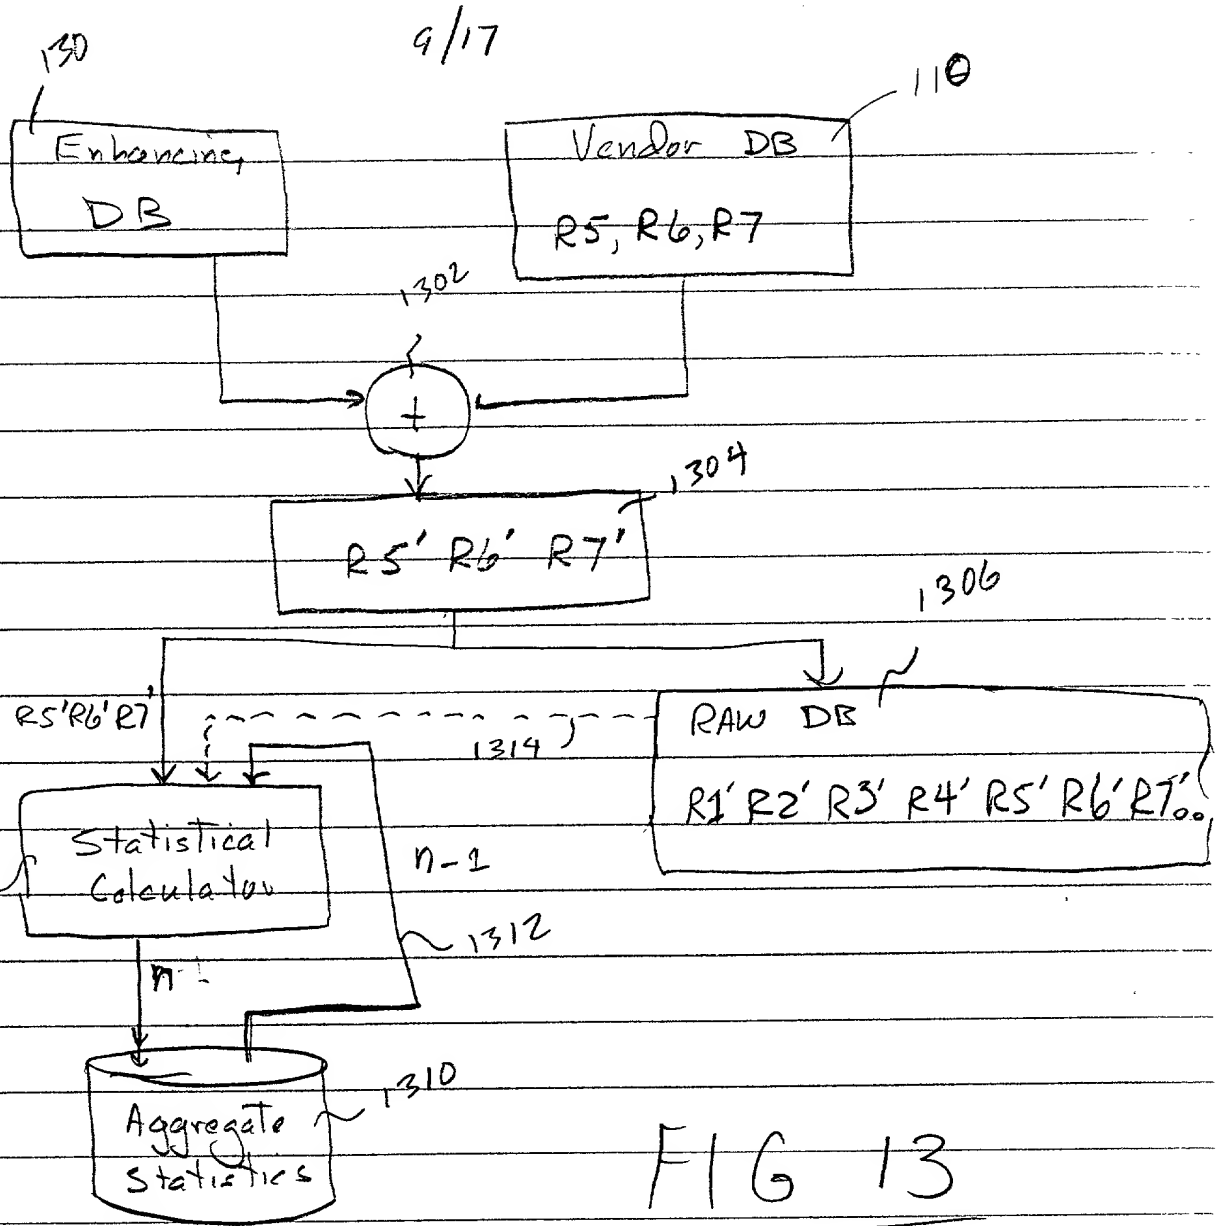 9/17
130
110
Enhancing
DB
Vendor DB
R5, R6, R7
1302
+
1304
R5' R6' R7'
1306
R5'R6'R7'
1314
RAW DB
R1' R2' R3' R4' R5' R6' R7'..
Statistical
Calculator
n-1
1312
n
1310
Aggregate
Statistics
FIG 13